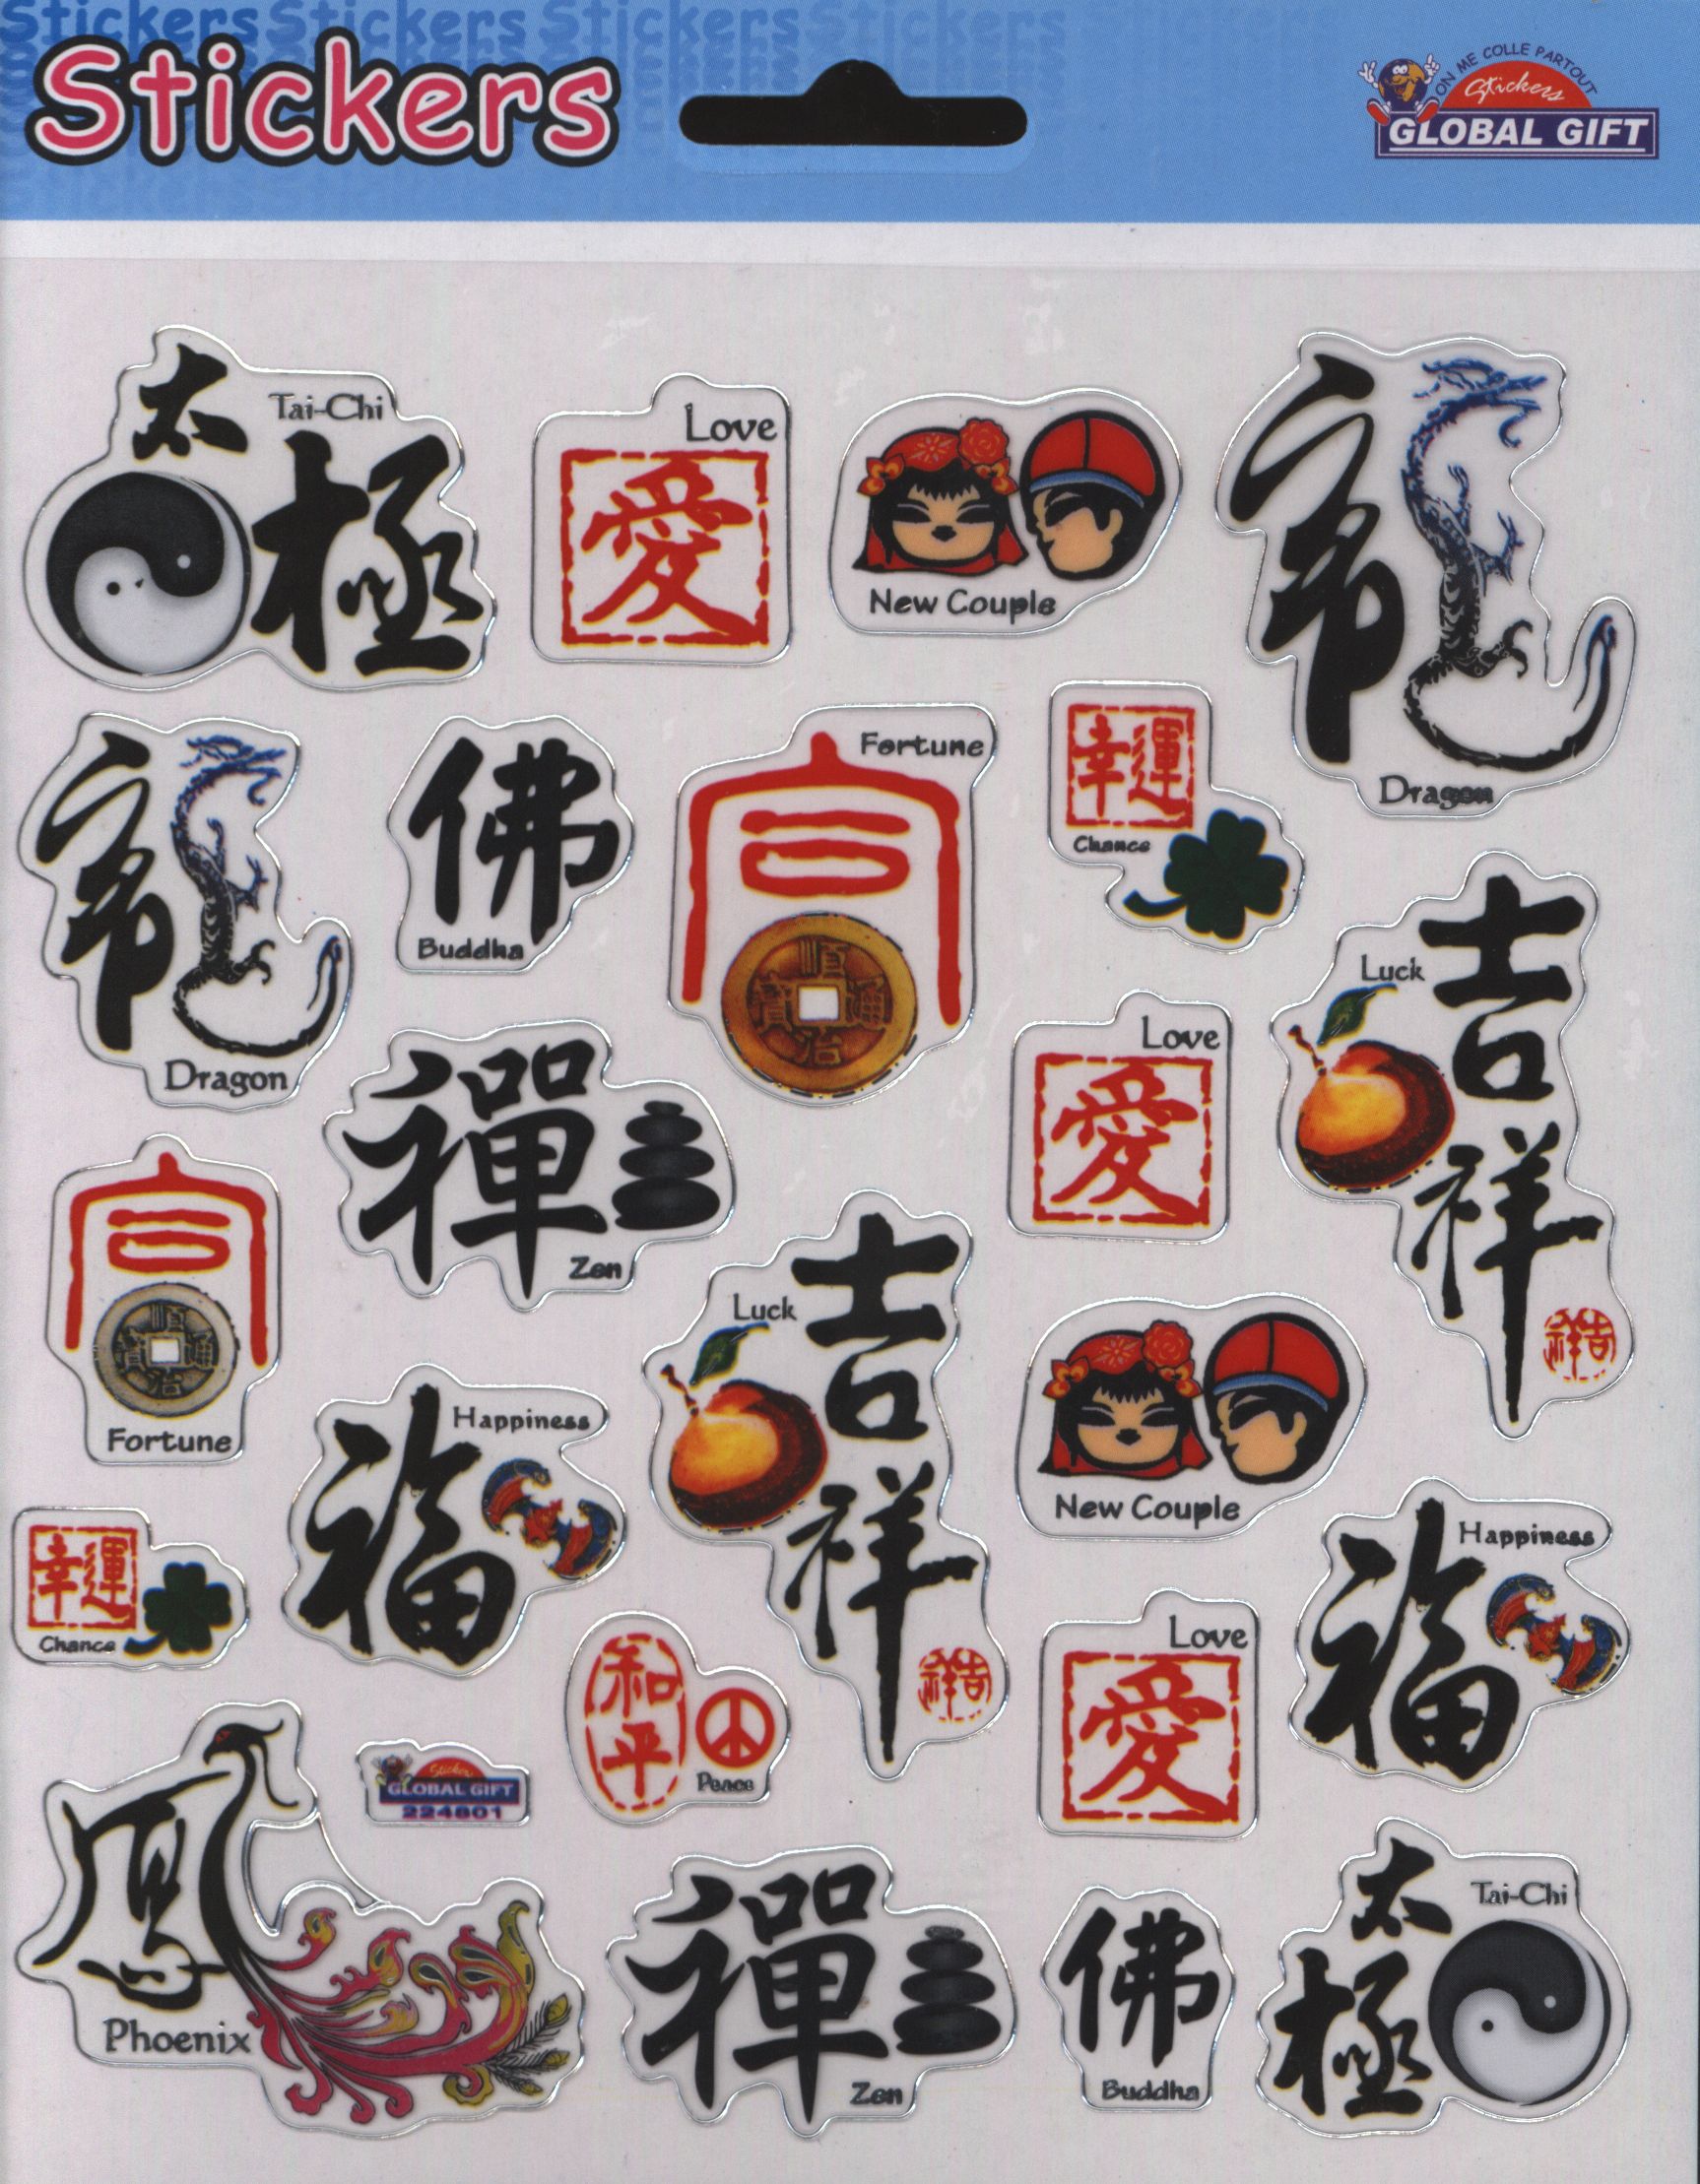 Stickers Stickers Stickers Stickers
Stickers
ON ME COLLE PARTOUT
Stickers
GLOBAL GIFT
太
Tai-Chi
極
Love
愛
New Couple
Dragon
Dragon
佛
Buddha
Fortune
順
治
通
寶
幸運
Chance
吉
Luck
祥
吉祥
禪
Zen
Love
愛
Fortune
順
治
通
寶
福
Happiness
吉
Luck
祥
吉祥
New Couple
幸運
Chance
和
平
Peace
Love
愛
福
Happiness
Stickers
GLOBAL GIFT
224801
Phoenix
禪
Zen
佛
Buddha
太
Tai-Chi
極